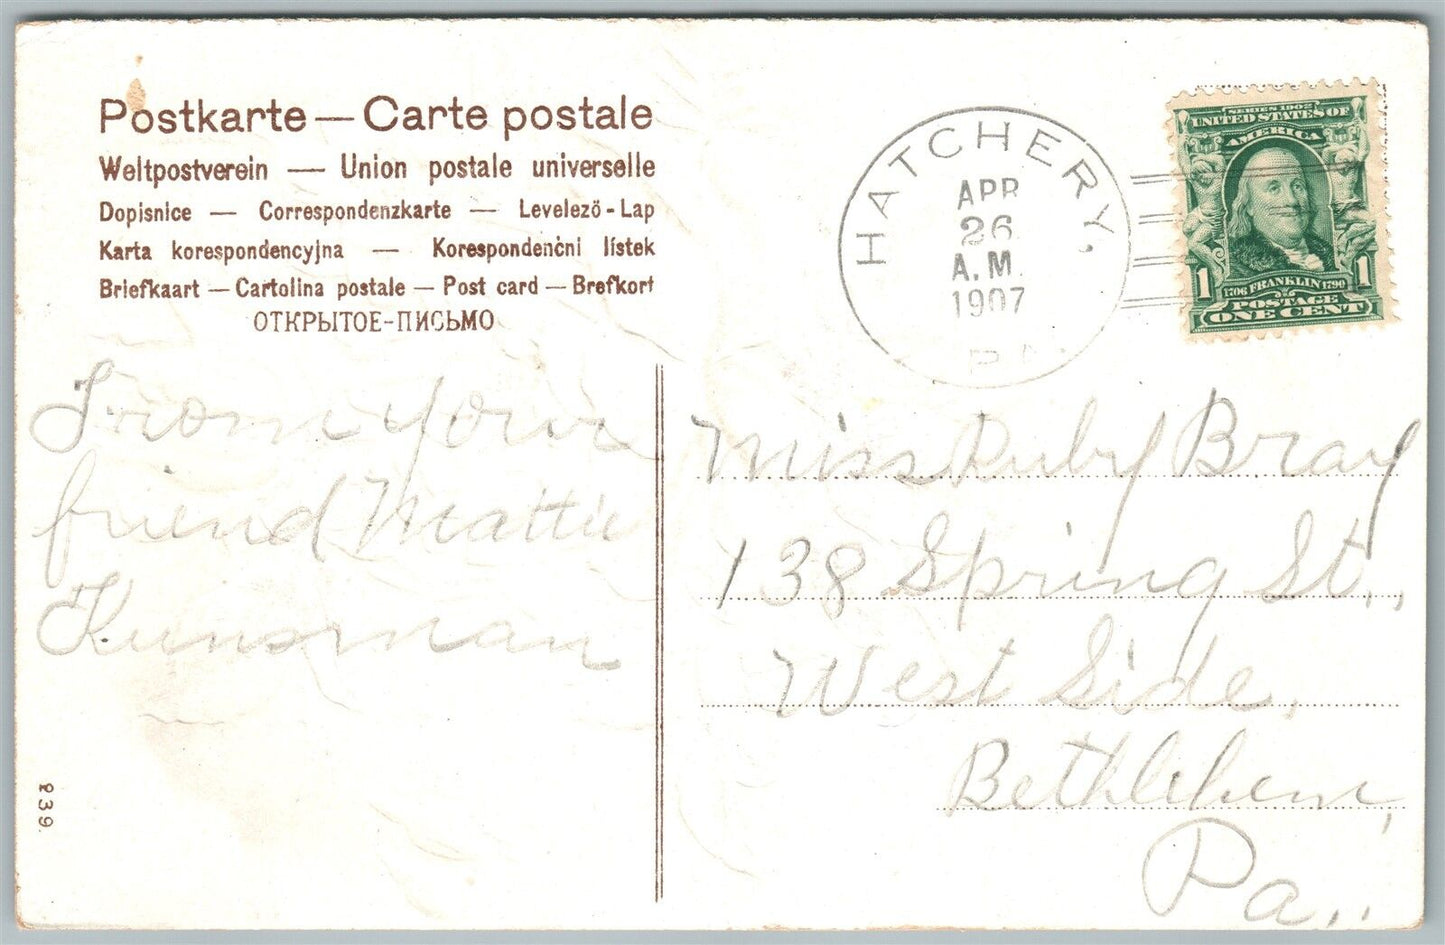 Postkarte — Carte postale
Weltpostverein — Union postale universelle
Dopisnice — Correspondenzkarte — Levelező-Lap
Karta korespondencyjna — Korespondenční lístek
Briefkaart — Cartolina postale — Post card — Brefkort
ОТКРЫТОЕ-ПИСЬМО
HATCHERY,
APR
26
A.M.
1907
PA.
SERIES 1902
UNITED STATES OF
AMERICA
1706 FRANKLIN 1790
1 1
OF
POSTAGE
ONE CENT
From your
friend Mattie
Kunsman
Miss Ruby Bray
138 Spring St.,
West Side,
Bethlehem,
Pa.,
239.